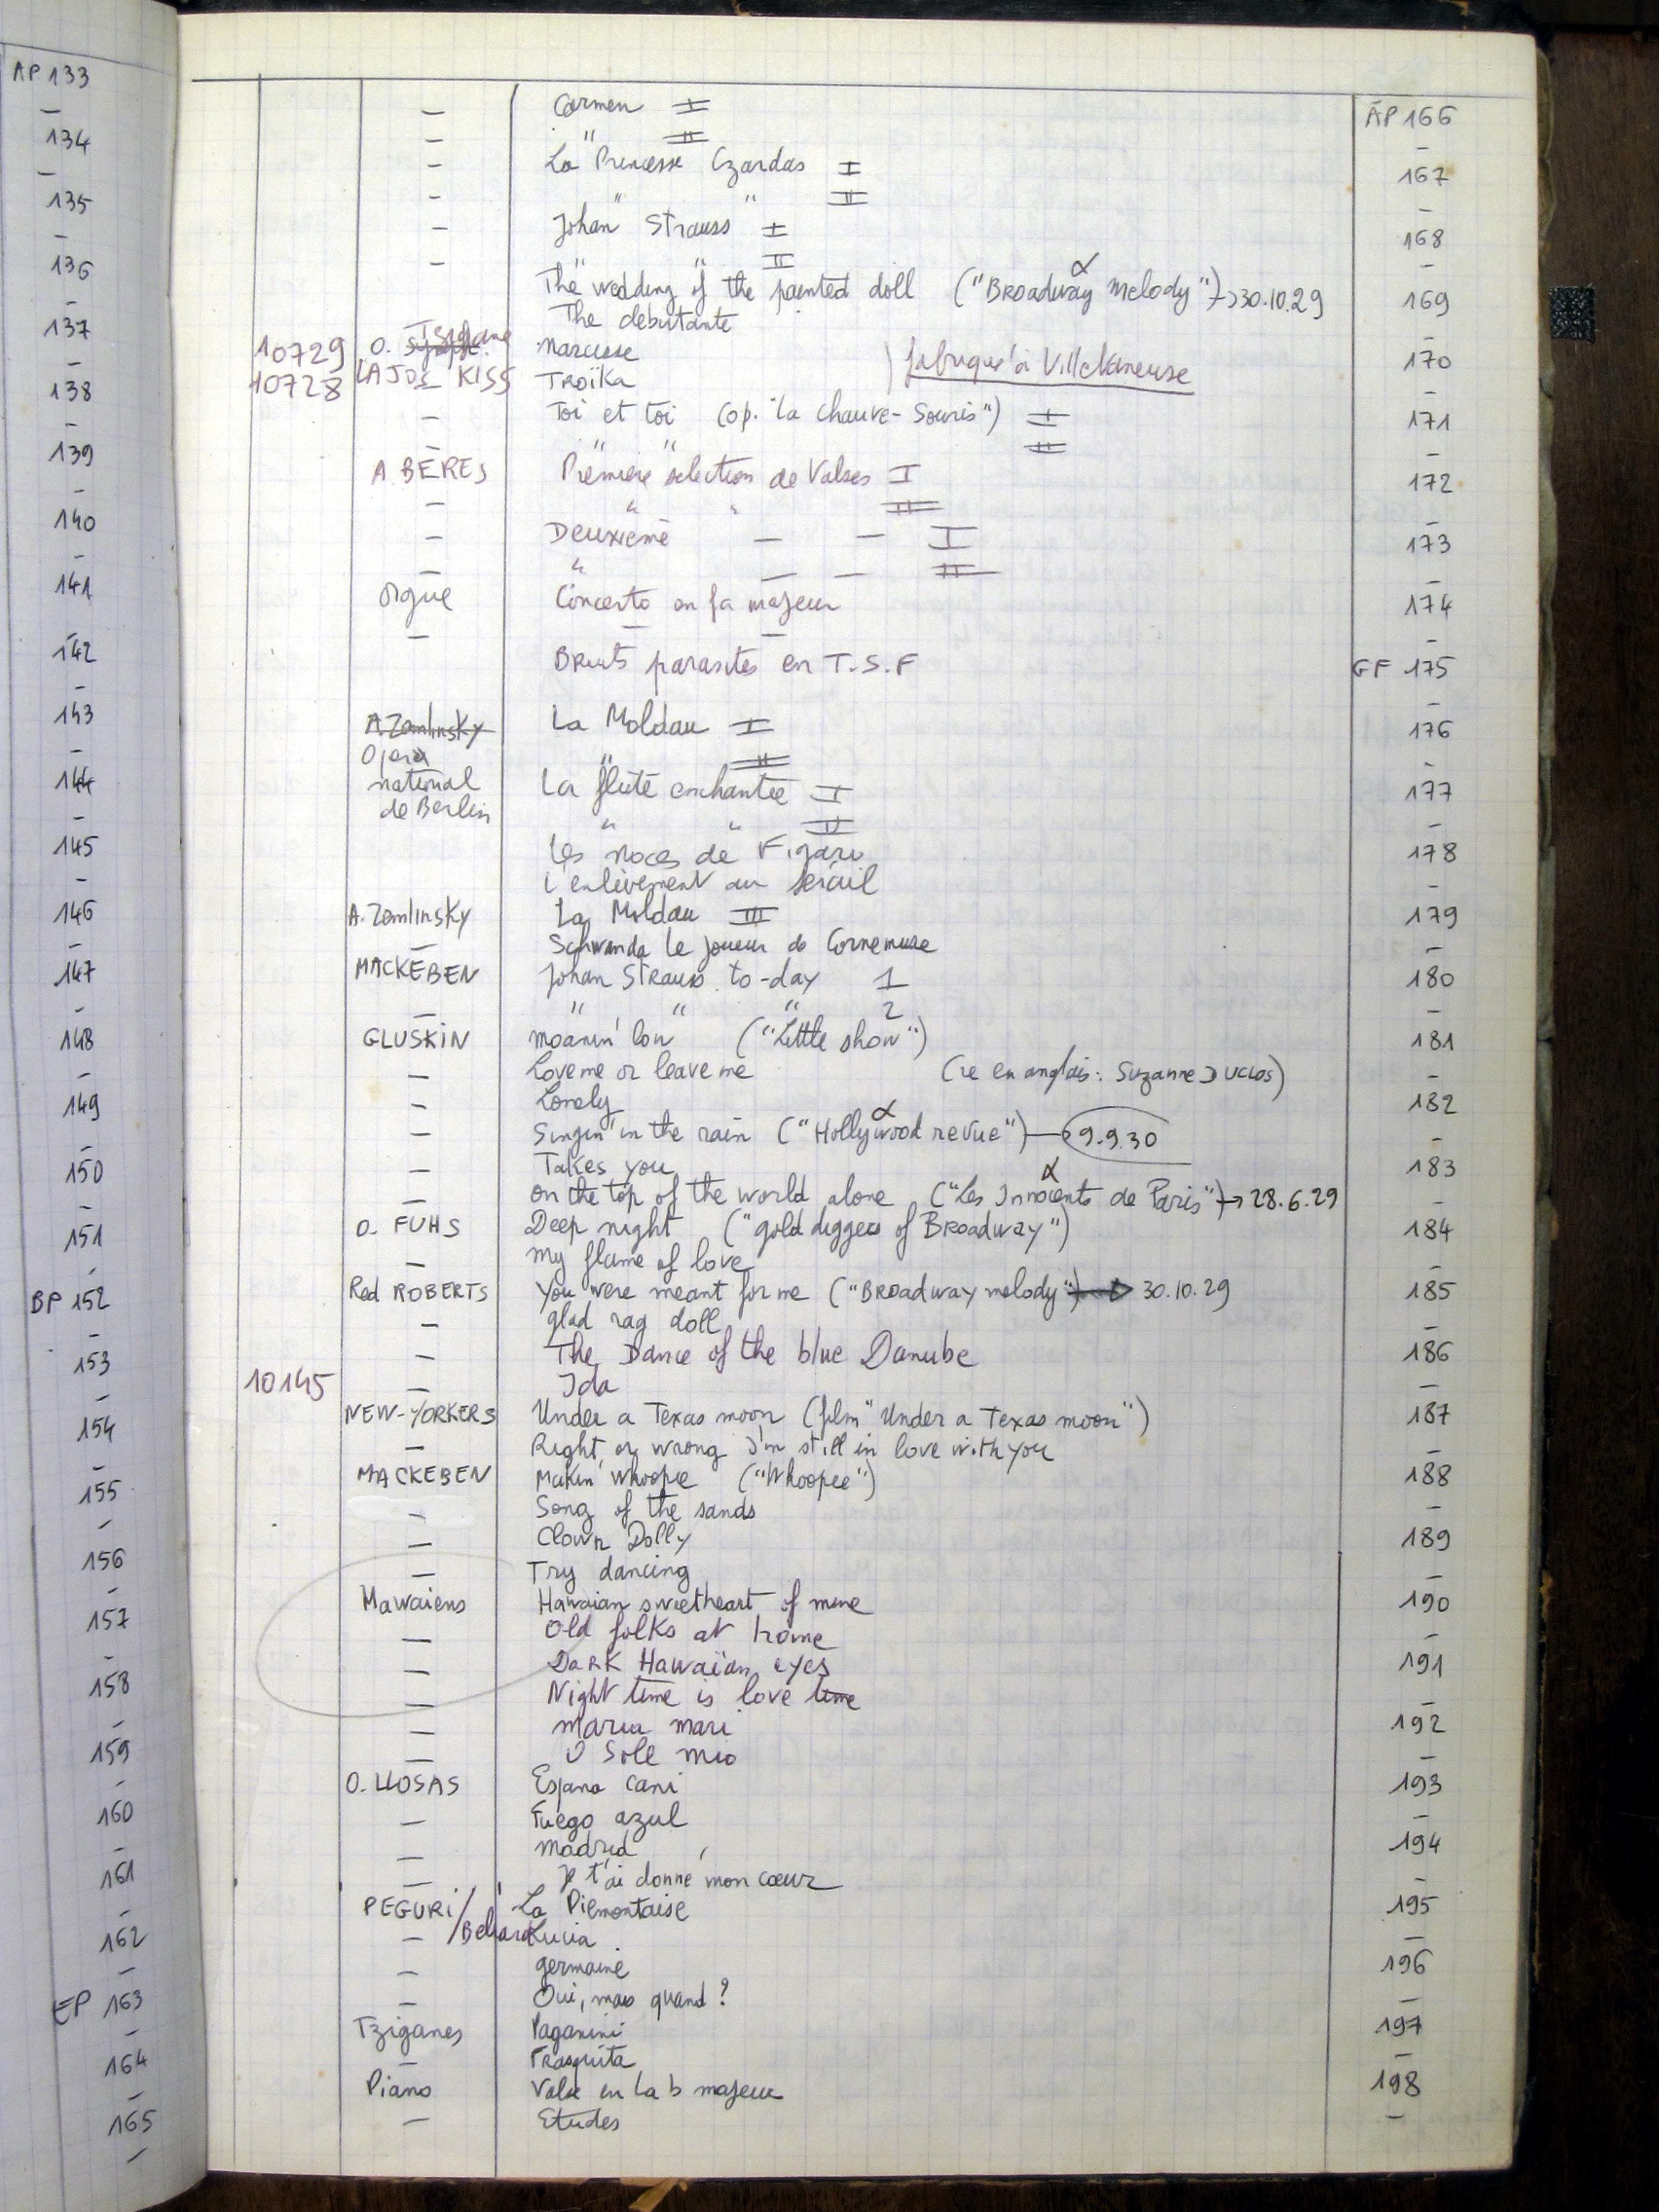 AP 133
—
134
—
135
—
136
—
137
—
138
—
139
—
140
—
141
—
142
—
143
—
144
—
145
—
146
—
147
—
148
—
149
—
150
—
151
—
BP 152
—
153
—
154
—
155
—
156
—
157
—
158
—
159
—
160
—
161
—
162
—
EP 163
—
164
—
165
—
— Carmen I AP 166
— " II —
— La Princesse Czardas I 167
— " " II —
— Johan Strauss I 168
— " " II —
The wedding of the painted doll ("Broadway melody") → 30.10.29 169
The debutante —
10729 O. Tsigane Narcisse fabriqué à Villetaneuse 170
10728 LAJOS KISS Troïka —
— Toi et toi (op. "La Chauve-Souris") I 171
— " " II —
A. BERES Première selection de Valses I 172
— " " II —
— Deuxième — — I 173
— " — — II —
Orgue Concerto en fa majeur 174
— — — —
Bruits parasites en T.S.F GF 175
—
A. Zemlinsky La Moldau I 176
Opera " II —
national La flute enchantée I 177
de Berlin " " II —
Les noces de Figaro 178
L'enlèvement au serail —
A. Zemlinsky La Moldau III 179
— Schwanda le joueur de Cornemuse —
MACKEBEN Johan Strauss to-day 1 180
— " " " 2 —
GLUSKIN moanin' low ("Little show") 181
— Love me or leave me (re en anglais: Suzanne Duclos) —
— Lonely 182
— Singin' in the rain ("Hollywood revue") → 9.9.30 —
— Takes you 183
— on the top of the world alone ("Les Innocents de Paris") → 28.6.29 —
O. FUHS Deep night ("gold diggers of Broadway") 184
— My flame of love —
Red ROBERTS You were meant for me ("Broadway melody") → 30.10.29 185
— glad rag doll —
— The Dance of the blue Danube 186
10145 — Ida —
NEW-YORKERS Under a Texas moon (film "Under a Texas moon") 187
— Right or wrong I'm still in love with you —
MACKEBEN Makin' whoopee ("Whoopee") 188
— Song of the sands —
— Clown Dolly 189
— Try dancing —
Hawaiens Hawaian sweetheart of mine 190
— Old folks at home —
— Dark Hawaïan eyes 191
— Night time is love time —
— Maria mari 192
— O Sole mio —
O. LLOSAS Espana cani 193
— Fuego azul —
— Madrid 194
— Je t'ai donné mon cœur —
PEGURI/ La Piemontaise 195
— Beliard Lucia —
— germaine 196
— Oui, mais quand? —
Tziganes Paganini 197
— Frasquita —
Piano Valse en La b majeur 198
— Etudes —